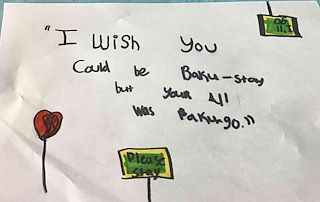 "I Wish You
Could be Baku-stay
but your All
was Bakungo."
Please
stay